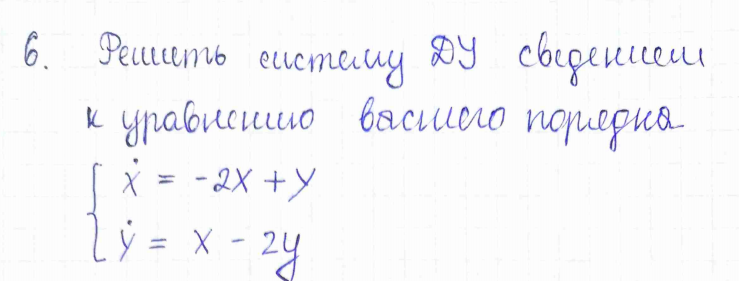 6. Решить систему ДУ сведением
к уравнению васшего порядка
{ ẋ = -2x + y
ẏ = x - 2y